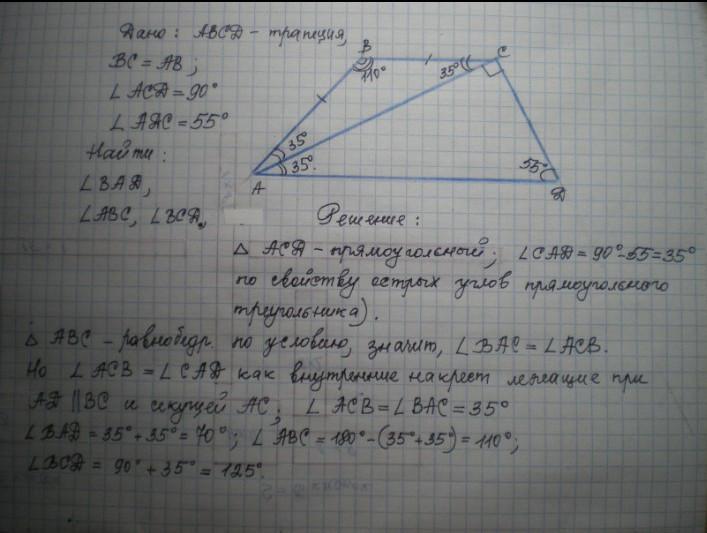 Дано: ABCD – трапеция,
BC = AB;
∠ ACD = 90°
∠ ADC = 55°
Найти:
∠ BAD,
∠ABC, ∠ BCD,
B
110°
35°
C
35°
35°.
A
55°
D
Решение:
△ ACD – прямоугольный; ∠ CAD = 90° – 55 = 35°
по свойству острых углов прямоугольного
треугольника).
△ ABC – равнобедр. по условию, значит, ∠ BAC = ∠ ACB.
Но ∠ ACB = ∠ CAD как внутренние накрест лежащие при
AD || BC и секущей AC; ∠ ACB = ∠ BAC = 35°
∠ BAD = 35° + 35° = 70°; ∠ ABC = 180° – (35° + 35°) = 110°;
∠ BCD = 90° + 35° = 125°.